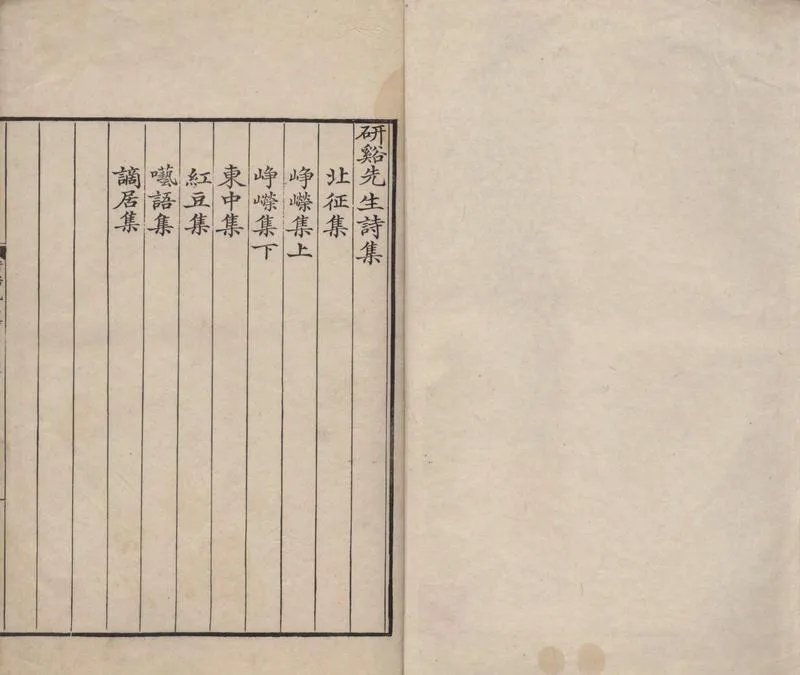 研谿先生詩集
北征集
崢嶸集上
崢嶸集下
東中集
紅豆集
囈語集
謫居集